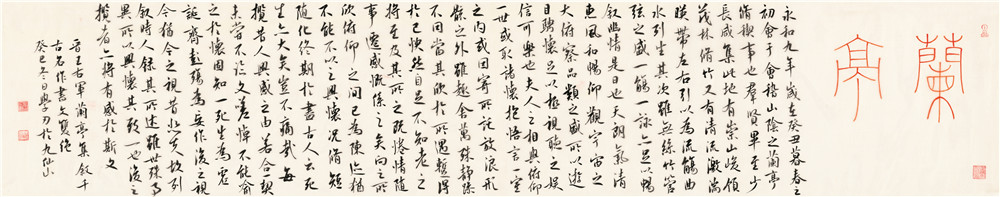 蘭亭
永和九年歲在癸丑暮春之
初會于會稽山陰之蘭亭
脩稧事也群賢畢至少
長咸集此地有崇山峻領
茂林脩竹又有清流激湍
暎帶左右引以為流觴曲
水列坐其次雖無絲竹管
弦之盛一觴一詠亦足以暢
叙幽情是日也天朗氣清
惠風和暢仰觀宇宙之
大俯察品類之盛所以遊
目騁懷足以極視聽之娛
信可樂也夫人之相與俯仰
一世或取諸懷抱悟言一室
之內或因寄所託放浪形
骸之外雖趣舍萬殊靜躁
不同當其欣於所遇暫得
於己怏然自足不知老之
將至及其所之既惓情隨
事遷感慨係之矣向之所
欣俯仰之間已為陳迹猶
不能不以之興懷況脩短
隨化終期於盡古人云死
生亦大矣豈不痛哉每
攬昔人興感之由若合一契
未嘗不臨文嗟悼不能喻
之於懷固知一死生為虛
誕齊彭殤為妄作後之視
今猶今之視昔悲夫故列
叙時人錄其所述雖世殊事
異所以興懷其致一也後之
攬者亦將有感於斯文
晉王右軍蘭亭集叙千
古名作書文雙絕
癸巳冬日學刃於九仙山